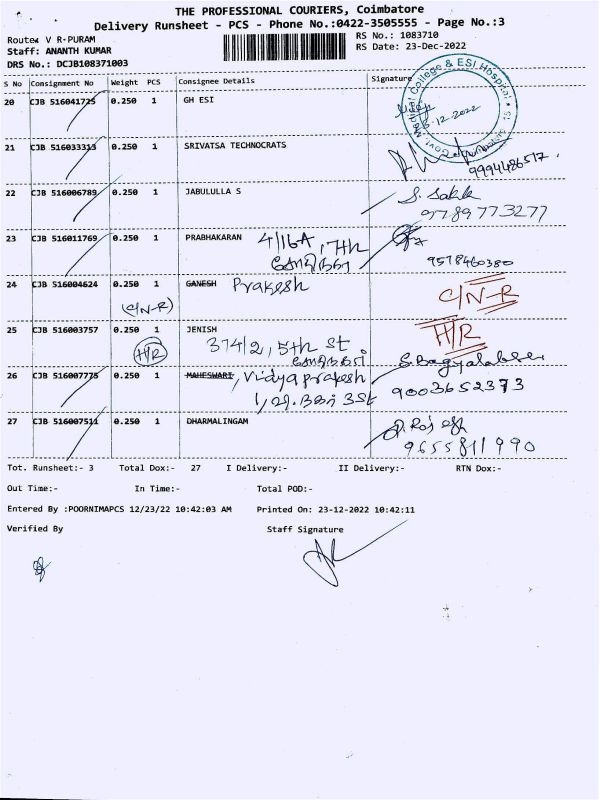 THE PROFESSIONAL COURIERS, Coimbatore
Delivery Runsheet - PCS - Phone No.:0422-3505555 - Page No.:3
Route: V R-PURAM
RS No.: 1083710
Staff: ANANTH KUMAR
RS Date: 23-Dec-2022
DRS No.: DCJB108371003
S No Consignment No Weight PCS Consignee Details Signature
20 CJB 516041725 0.250 1 GH ESI
Govt. Medical College & ESI Hospital
21 CJB 516033313 0.250 1 SRIVATSA TECHNOCRATS
9994486517
22 CJB 516006789 0.250 1 JABULULLA S
9789773277
23 CJB 516011769 0.250 1 PRABHAKARAN 4/16A, 7th
9578460380
24 CJB 516004624 0.250 1 GANESH Prakesh C/N-R
(C/N-R)
25 CJB 516003757 0.250 1 JENISH H/R
H/R 374/2, 5th st
26 CJB 516007775 0.250 1 MAHESWARI, Vidya prakesh
9003652373
27 CJB 516007511 0.250 1 DHARMALINGAM
9655811990
Tot. Runsheet:- 3 Total Dox:- 27 I Delivery:- II Delivery:- RTN Dox:-
Out Time:- In Time:- Total POD:-
Entered By :POORNIMAPCS 12/23/22 10:42:03 AM Printed On: 23-12-2022 10:42:11
Verified By Staff Signature